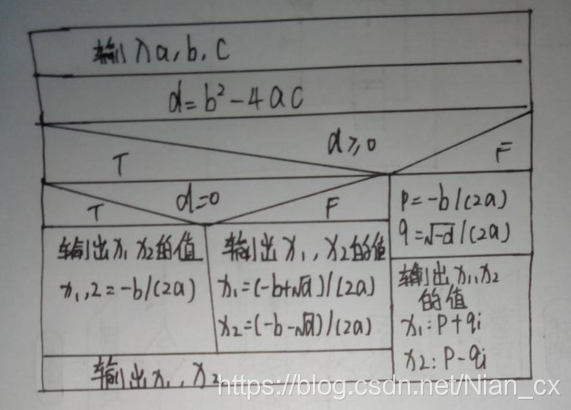 输入a,b,c
d=b²-4ac
d≥0
T
F
d=0
T
F
输出x1 x2的值
x1,2=-b/(2a)
输出x1,x2的值
x1=(-b+√d)/(2a)
x2=(-b-√d)/(2a)
p=-b/(2a)
q=√-d/(2a)
输出x1,x2
的值
x1:p+qi
x2:p-qi
输出x1,x2
https://blog.csdn.net/Nian_cx